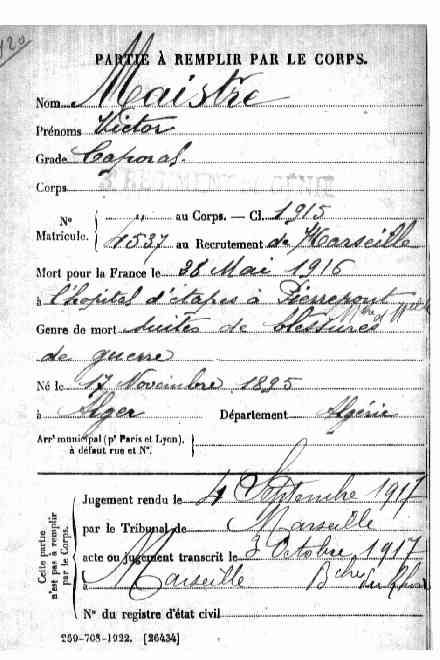 PARTIE À REMPLIR PAR LE CORPS.
Nom Maistre
Prénoms Victor
Grade Caporal
Corps
N° Matricule. { " au Corps. — Cl. 1915
4537 au Recrutement de Marseille
Mort pour la France le 28 Mai 1916
à l'hôpital d'étapes à Pierrepont
Genre de mort suites de blessures
de guerre
Né le 17 Novembre 1895
à Alger Département Algérie
Arrt municipal (pr Paris et Lyon),
à défaut rue et N°.
Cette partie n'est pas à remplir par le Corps.
Jugement rendu le 4 Septembre 1917
par le Tribunal de Marseille
acte ou jugement transcrit le 3 Octobre 1917
à Marseille Bches du Rhône
N° du registre d'état civil
259-708-1922. [26434]